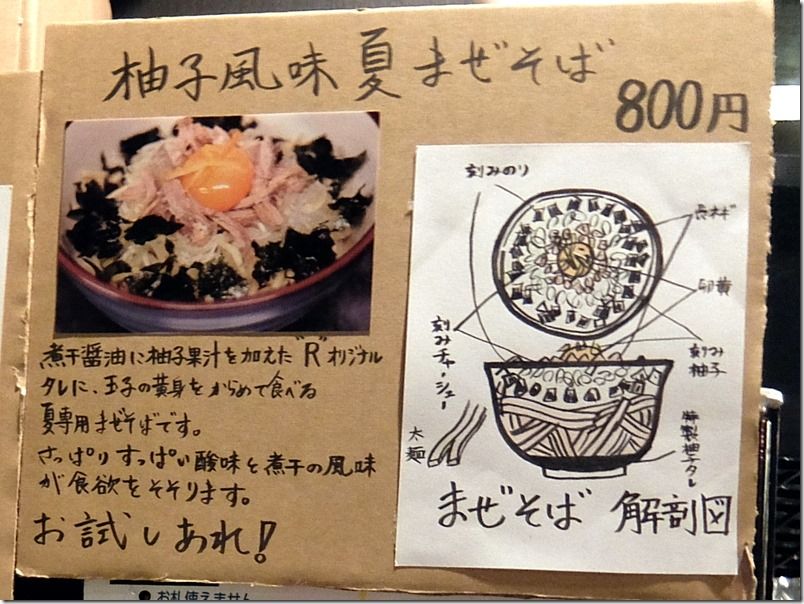 柚子風味 夏 まぜそば
800円
煮干醤油に柚子果汁を加えた"R"オリジナル
タレに、玉子の黄身をからめて食べる
夏専用まぜそばです。
さっぱりすっぱい酸味と煮干の風味
が食欲をそそります。
お試しあれ!
刻みのり
長ネギ
卵黄
刻み
柚子
刻みチャーシュー
太麺
特製柚子タレ
まぜそば 解剖図
●お札使えません